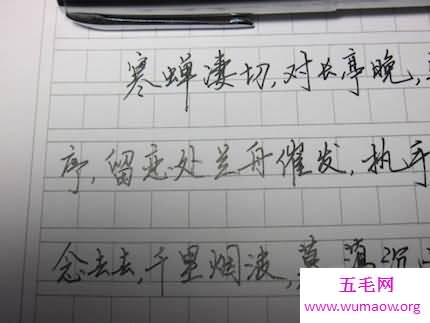 寒蝉凄切,对长亭晚,
序,留恋处兰舟催发,执手
念去去,千里烟波,
五毛网
www.wumaow.org